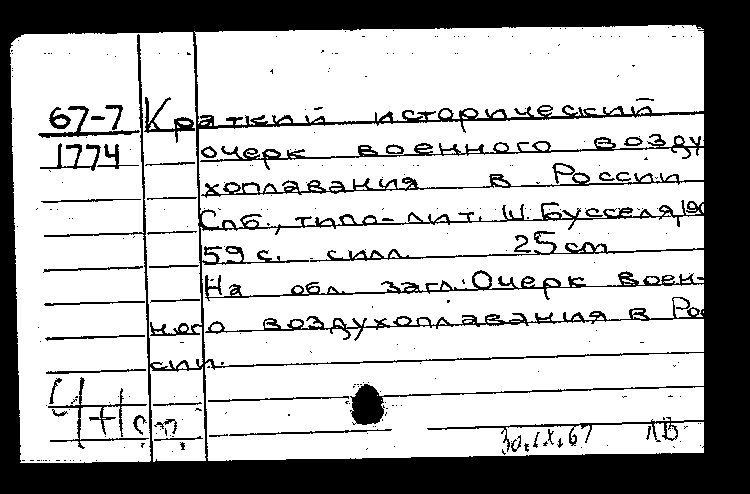 67-7 Краткий исторический
1774 очерк военного возду
хоплавания в России
Спб., типо-лит. Ш. Бусселя, 190
59 с. с илл. 25 cm
На обл. загл.: Очерк воен-
ного воздухоплавания в Рос
сии.
30.IX.67 ЛВ